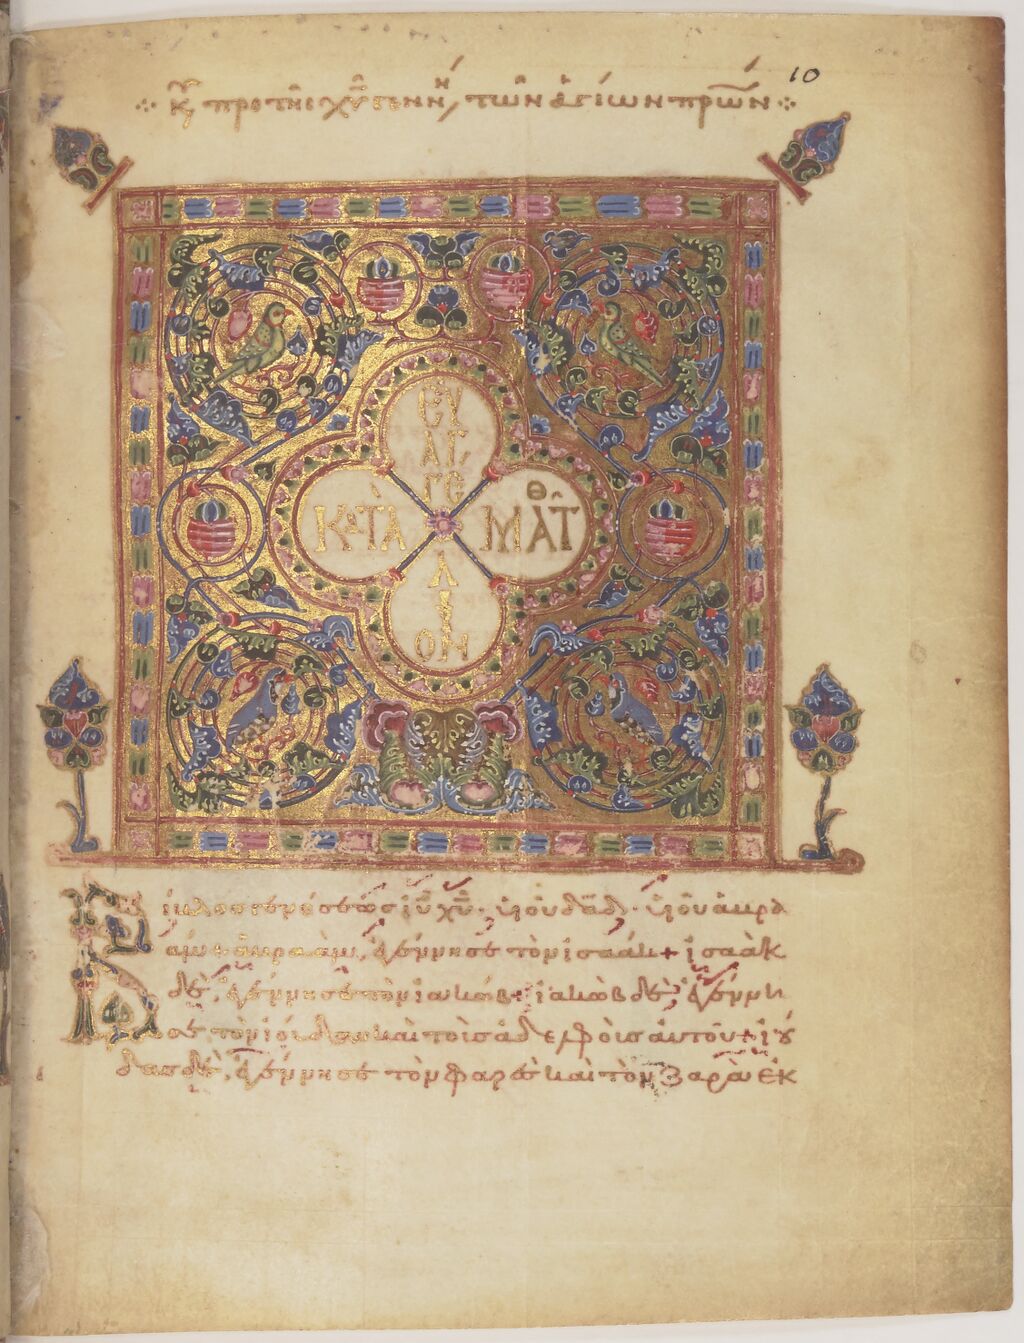 10
Κυ προ τῆς χῦ γενν, τῶν ἁγίων πρων
ΕΥ
ΑΓ,
ΓΕ
ΚΑΤᾺ ΜΑΤΘ
Λ
Ι
ΟΝ
Βίβλος γενέσεως ἰῡ χῡ· υἱοῦ δᾱδ· υἱοῦ ἀβρα
άμ+ ἀβραὰμ, ἐγέννησε τὸν ἰσαάκ+ ἰσαὰκ
δὲ, ἐγέννησε τὸν ἰακώβ+ ἰακὼβ δὲ, ἐγέννη
σε τὸν ἰούδαν καὶ τοὺς ἀδελφοὺς αὐτοῦ+ ἰού
δας δὲ, ἐγέννησε τὸν φαρὲς καὶ τὸν ζαρὰ ἐκ